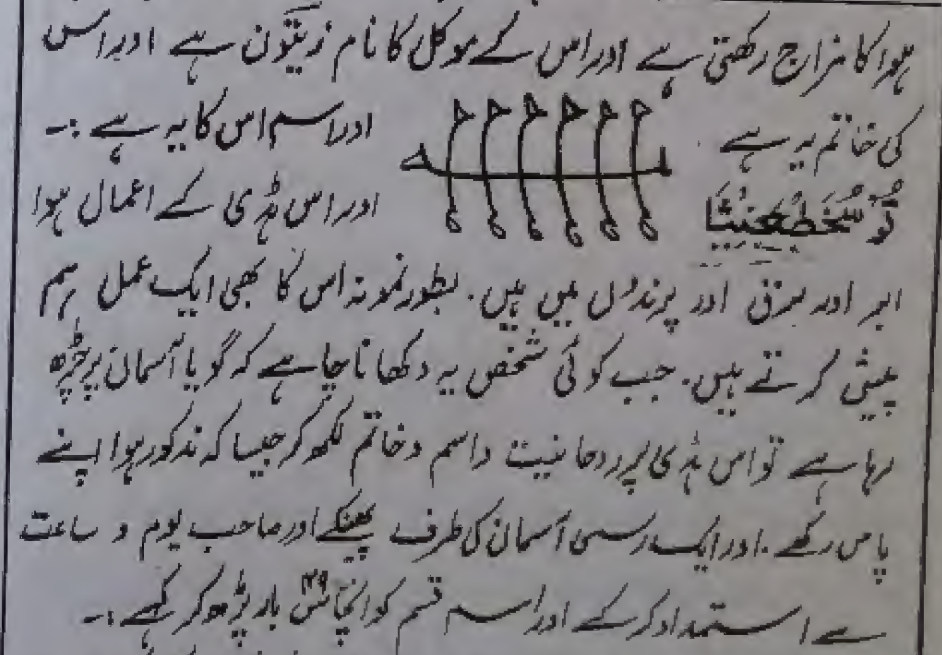 ہوا کا مزاج رکھتی ہے اور اس کے موکل کا نام زیتون ہے اور اس
کی خاتم یہ ہے اور اسم اس کا یہ ہے :۔
اور اس ہڈی کے اعمال ہوا
ابر اور برق اور پرندوں میں ہیں۔ بطور نمونہ اس کا بھی ایک عمل ہم
پیش کرتے ہیں۔ جب کوئی شخص یہ دکھانا چاہے کہ گویا آسمان پر چڑھ
رہا ہے تو اس ہڈی پر روحانیت و اسم و خاتم لکھ کر جیسا کہ مذکور ہوا اپنے
پاس رکھے۔ اور ایک رسی آسمان کی طرف پھینکے اور صاحب یوم و ساعت
سے استمداد کرکے اور اسم قسم کو انچاس ۴۹ بار پڑھ کر کہے :۔